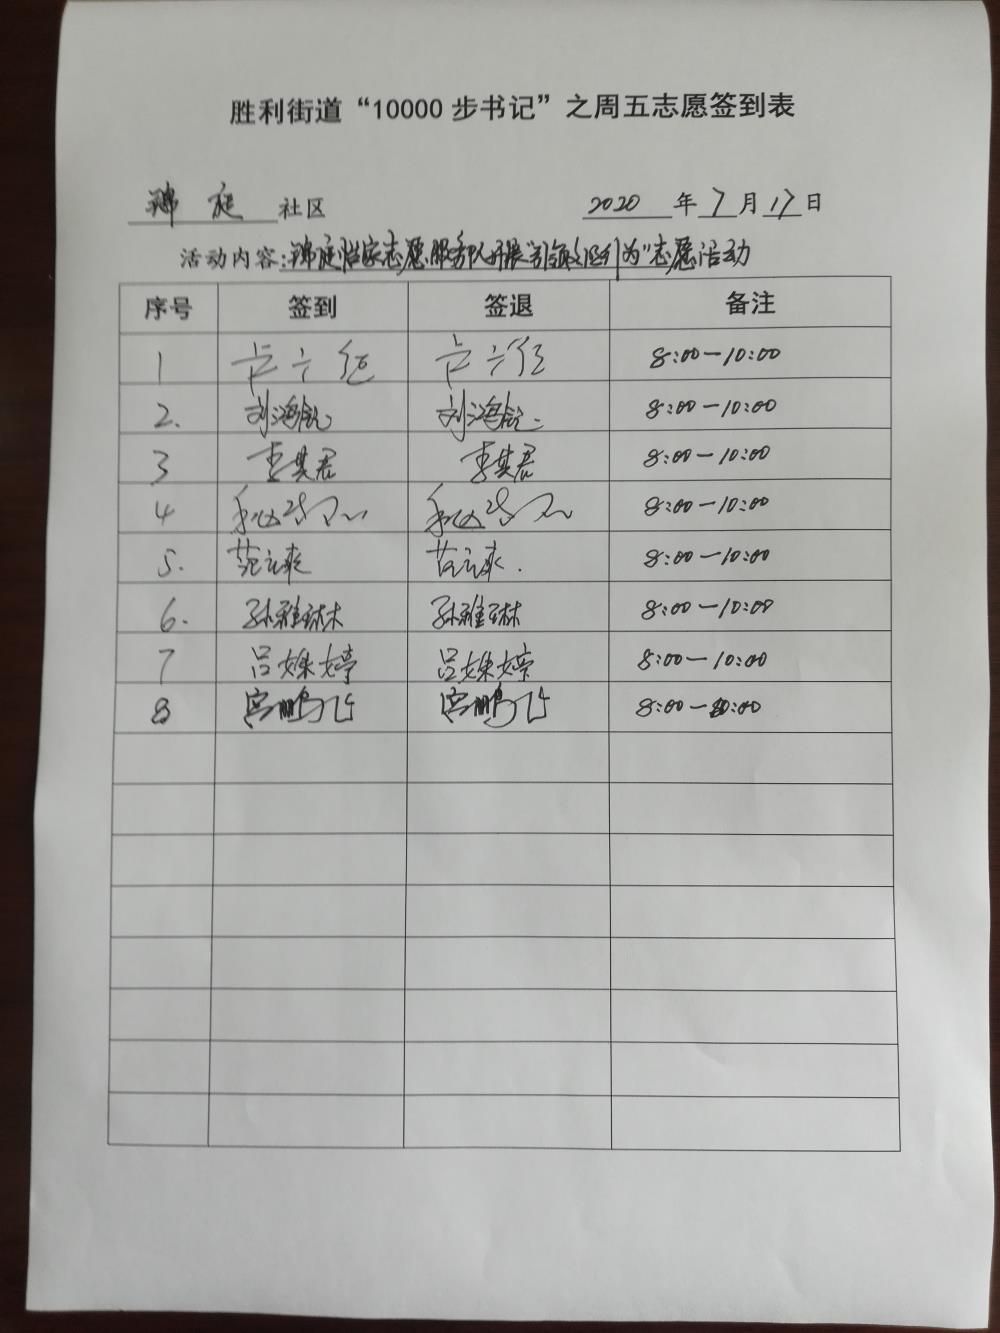 胜利街道“10000 步书记”之周五志愿签到表
锦庭 社区 2020 年 7 月 17 日
活动内容:锦庭 家志愿服务队开展 志愿活动
序号 签到 签退 备注
1 8:00—10:00
2. 刘鸿 刘鸿 8:00—10:00
3 李其君 李其君 8:00—10:00
4 8:00—10:00
5. 范立爽 范立爽. 8:00—10:00
6. 孙雅琳 孙雅琳 8:00—10:00
7 吕姝婷 吕姝婷 8:00—10:00
8 宫鹏飞 宫鹏飞 8:00—10:00